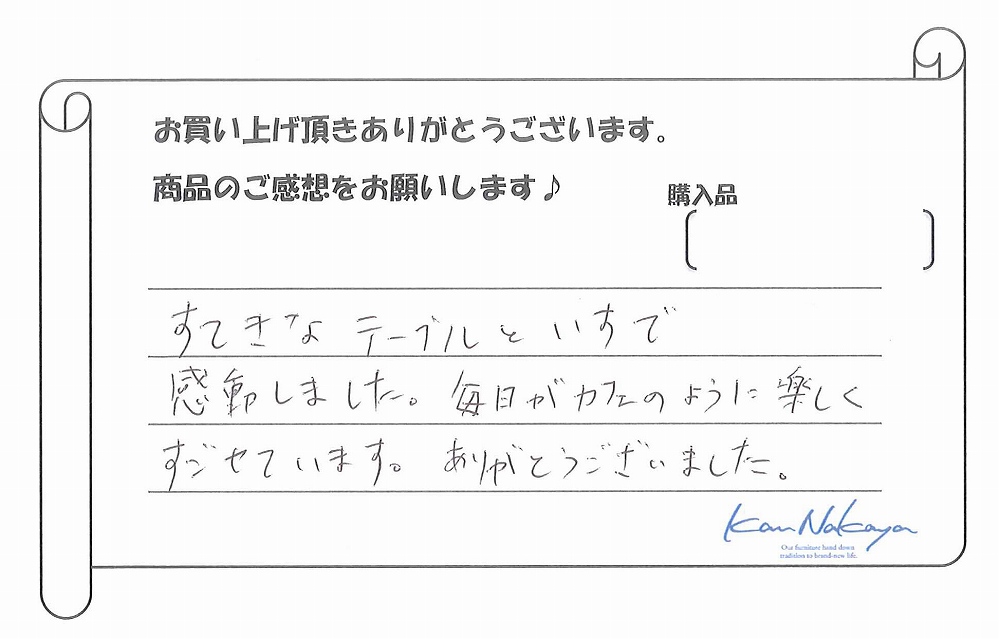 お買い上げ頂きありがとうございます。
商品のご感想をお願いします♪
購入品
すてきな テーブルと いすで
感動しました。 毎日が カフェの ように 楽しく
すごせて います。 ありがとうございました。
Kan Nakaya
Our furniture hand down
tradition to brand-new life.